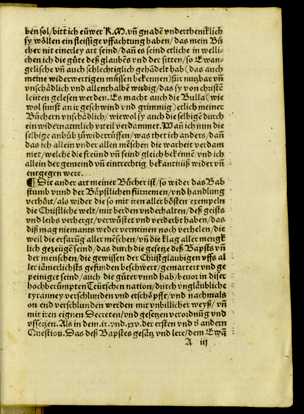 ben sol/ bitt ich eüwer K.M. vñ gnadē vnderthenklich
sy wöllen ein fleissige vffachtung haben/ das mein Bü
cher nit einerley art seind/ dañ es seind etliche in welli-
chen ich die güte deß glaubēs vnd der sitten/ so Ewan-
gelische vñ auch schlechtiglich gehādelt hab (das auch
meine widerwertigen müssen bekennen) für nutzbar vñ
vnschädlich vnd allenthalbē wirdig/ das sy von christē
leüten gelesen werden. Es macht auch die Bulla (wie
wol sunst an ir geschwind vnd grimmig) etlich meiner
Bücher vnschädlich/ wiewol sy auch die selbige durch
ein widernatürlich vrteil verdammet. Wañ ich nun die
selbige anhüb zůwiderrüffen/ was thet ich anders/ dañ
das ich allein vnder allen mēschen die warheit verdam
met/ welche die freünd vñ feind gleich bekennē/ vnd ich
allein der gemeinē vñ eintrechtigē bekantnuß wider vñ
entgegen were.
¶ Die ander art meiner Bücher ist/ so wider das Bab
stumb vnnd der Bäpstlichen fürnemen/ vnd handlung
verhūt/ als wider die so mit iren aller bösten exempeln
die Christliche welt/ mit berden vnderhalten/ deß geists
vnd leibs verhergt/ verwüstet vnd verderbt haben/ das
diß mag niemants weder verneinen noch verhelen/ die
weil die erfarūg aller mēschen/ vñ die klag aller menge
lich gezeügē seind/ das durch die gesetz deß Bapsts vñ
der menschen/ die gewissen der Christglaubigen vffs al
ler iāmerlichsts gefunden beschwert/ gemartert vnd ge
peiniget seind/ auch die gütter vnnd hab/ beuor in diser
hochberümpten Teütschen nation/ durch vnglaūbliche
tyranney verschlunden vnd erschöpfft/ vnd nachmals
on end verschlunden werden mit vnbillicher weyß/ vñ
mit iren eignen Decreten/ vnd gesetzen verordnüg vnd
vffsetzen. Als in dem .ix. vnd .xxv. der ersten vnd ů andern
Question. Das deß Bapstes gesatz/ vnd lere/ dem Ewā
A iij